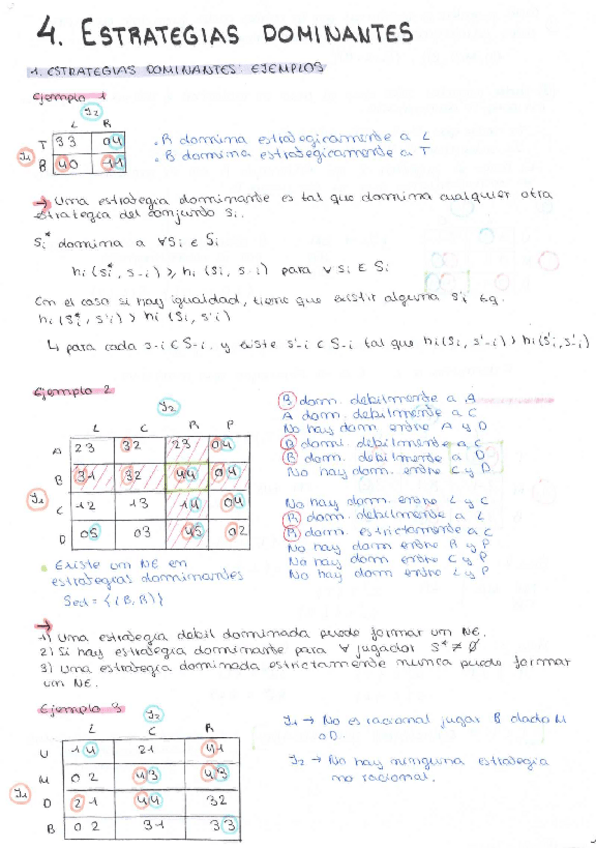 4. ESTRATEGIAS DOMINANTES
1. ESTRATEGIAS DOMINANTES: EJEMPLOS
Ejemplo 1
J2
L R
T 3 3 0 4
J1
B 4 0 1 1
· R domina estrategicamente a L
· B domina estrategicamente a T
→ Una estrategia dominante es tal que domina cualquier otra
estrategia del conjunto Si.
Si* domina a ∀Si ∈ Si
hi (si*, s-i) ≥ hi (si, s-i) para ∀ si ∈ Si
En el caso si hay igualdad, tiene que existir alguna s'i tq.
hi (si*, s'i) > hi (si, s'i)
↳ para cada s-i ⊂ S-i y existe s'-i ⊂ S-i tal que hi(si, s'-i) > hi(s'i, s'-i)
Ejemplo 2
J2
L C R P
A 2 3 3 2 2 3 0 4
B 3 1 3 2 4 4 0 4
J1
C 1 2 1 3 1 4 0 4
D 0 5 0 3 4 5 0 2
B dom. debilmente a A
A dom. debilmente a C
No hay dom. entre A y D
B dom. debilmente a C
B dom. debilmente a D
No hay dom. entre C y D
No hay dom. entre L y C
R dom. debilmente a L
R dom. estrictamente a C
No hay dom entre R y P
No hay dom entre C y P
No hay dom entre L y P
· Existe un NE en
estrategias dominantes
Sed = {(B, R)}
→
1) Una estrategia debil dominada puede formar un NE.
2) Si hay estrategia dominante para ∀ jugador S* ≠ ∅
3) Una estrategia dominada estrictamente nunca puede formar
un NE.
Ejemplo 3
J2
L C R
U 1 4 2 1 4 1
M 0 2 4 3 4 3
J1
D 2 1 4 4 3 2
B 0 2 3 1 3 3
J1 → No es racional jugar B dado M
o D.
J2 → No hay ninguna estrategia
no racional.